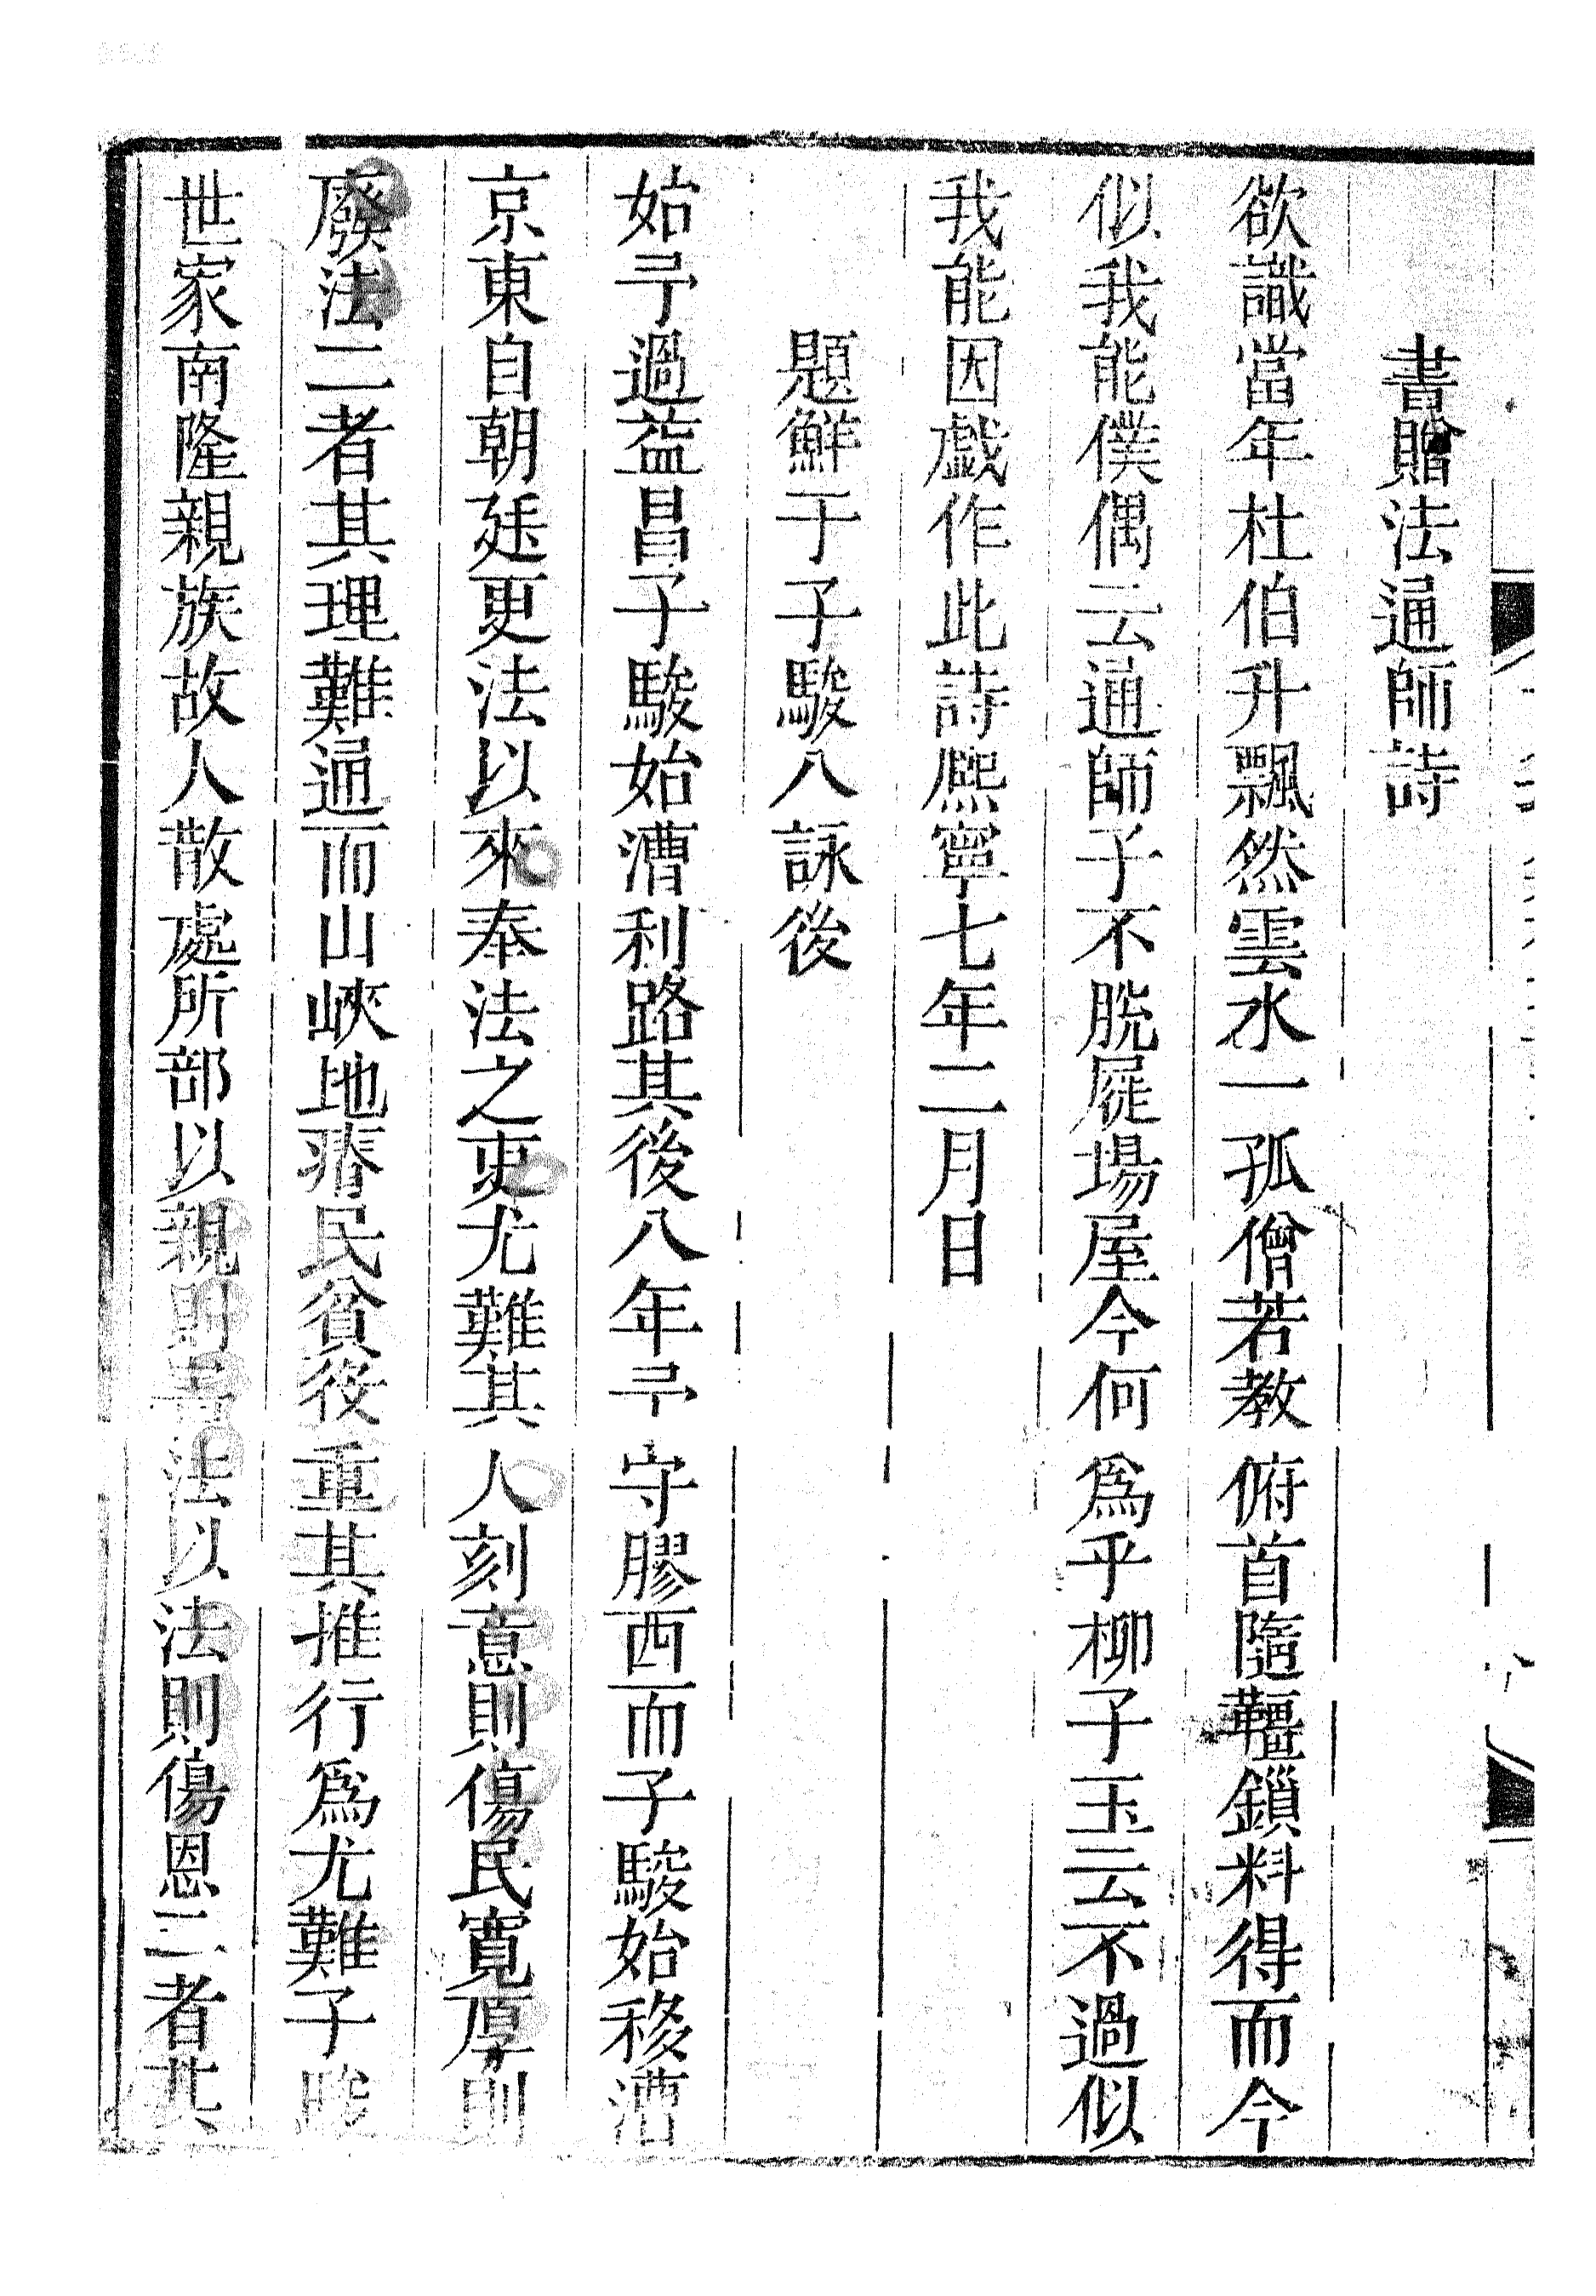 書贈法通師詩
欲識當年杜伯升飄然雲水一孤僧若教俯首隨韁鎖料得而今
似我能僕偶云通師子不脫屣場屋今何爲乎柳子玉云不過似
我能因戲作此詩熈寧七年二月日
題鮮于子駿八詠後
始予過益昌子駿始漕利路其後八年予守膠西而子駿始移漕
京東自朝廷更法以來奉法之吏尤難其人刻意則傷民寬厚則
廢法二者其理難通而山峽地瘠民貧役重其推行爲尤難子駿
世家南隆親族故人散處所部以親則害法以法則傷恩二者其